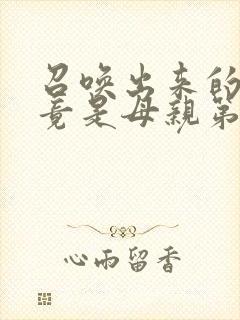 召唤出来的
竟是母亲第
心雨留香